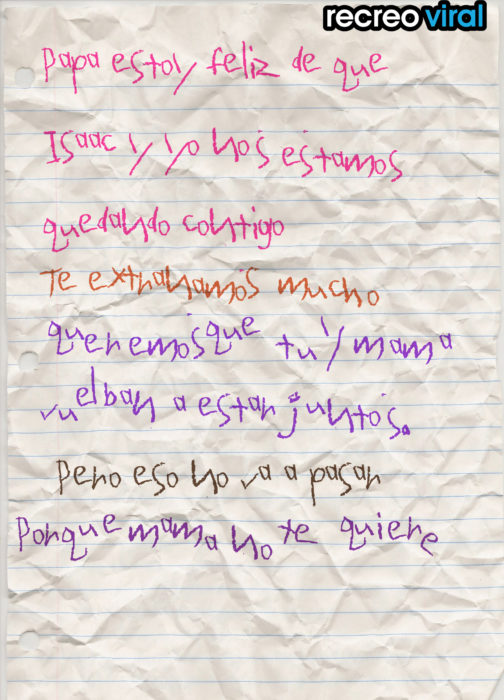 recreoviral
Papa estoy feliz de que
Isaac y yo nos estamos
quedando contigo
Te extrañamos mucho
queremos que tu y mama
vuelban a estar juntos.
Pero eso no va a pasar
Porque mama no te quiere